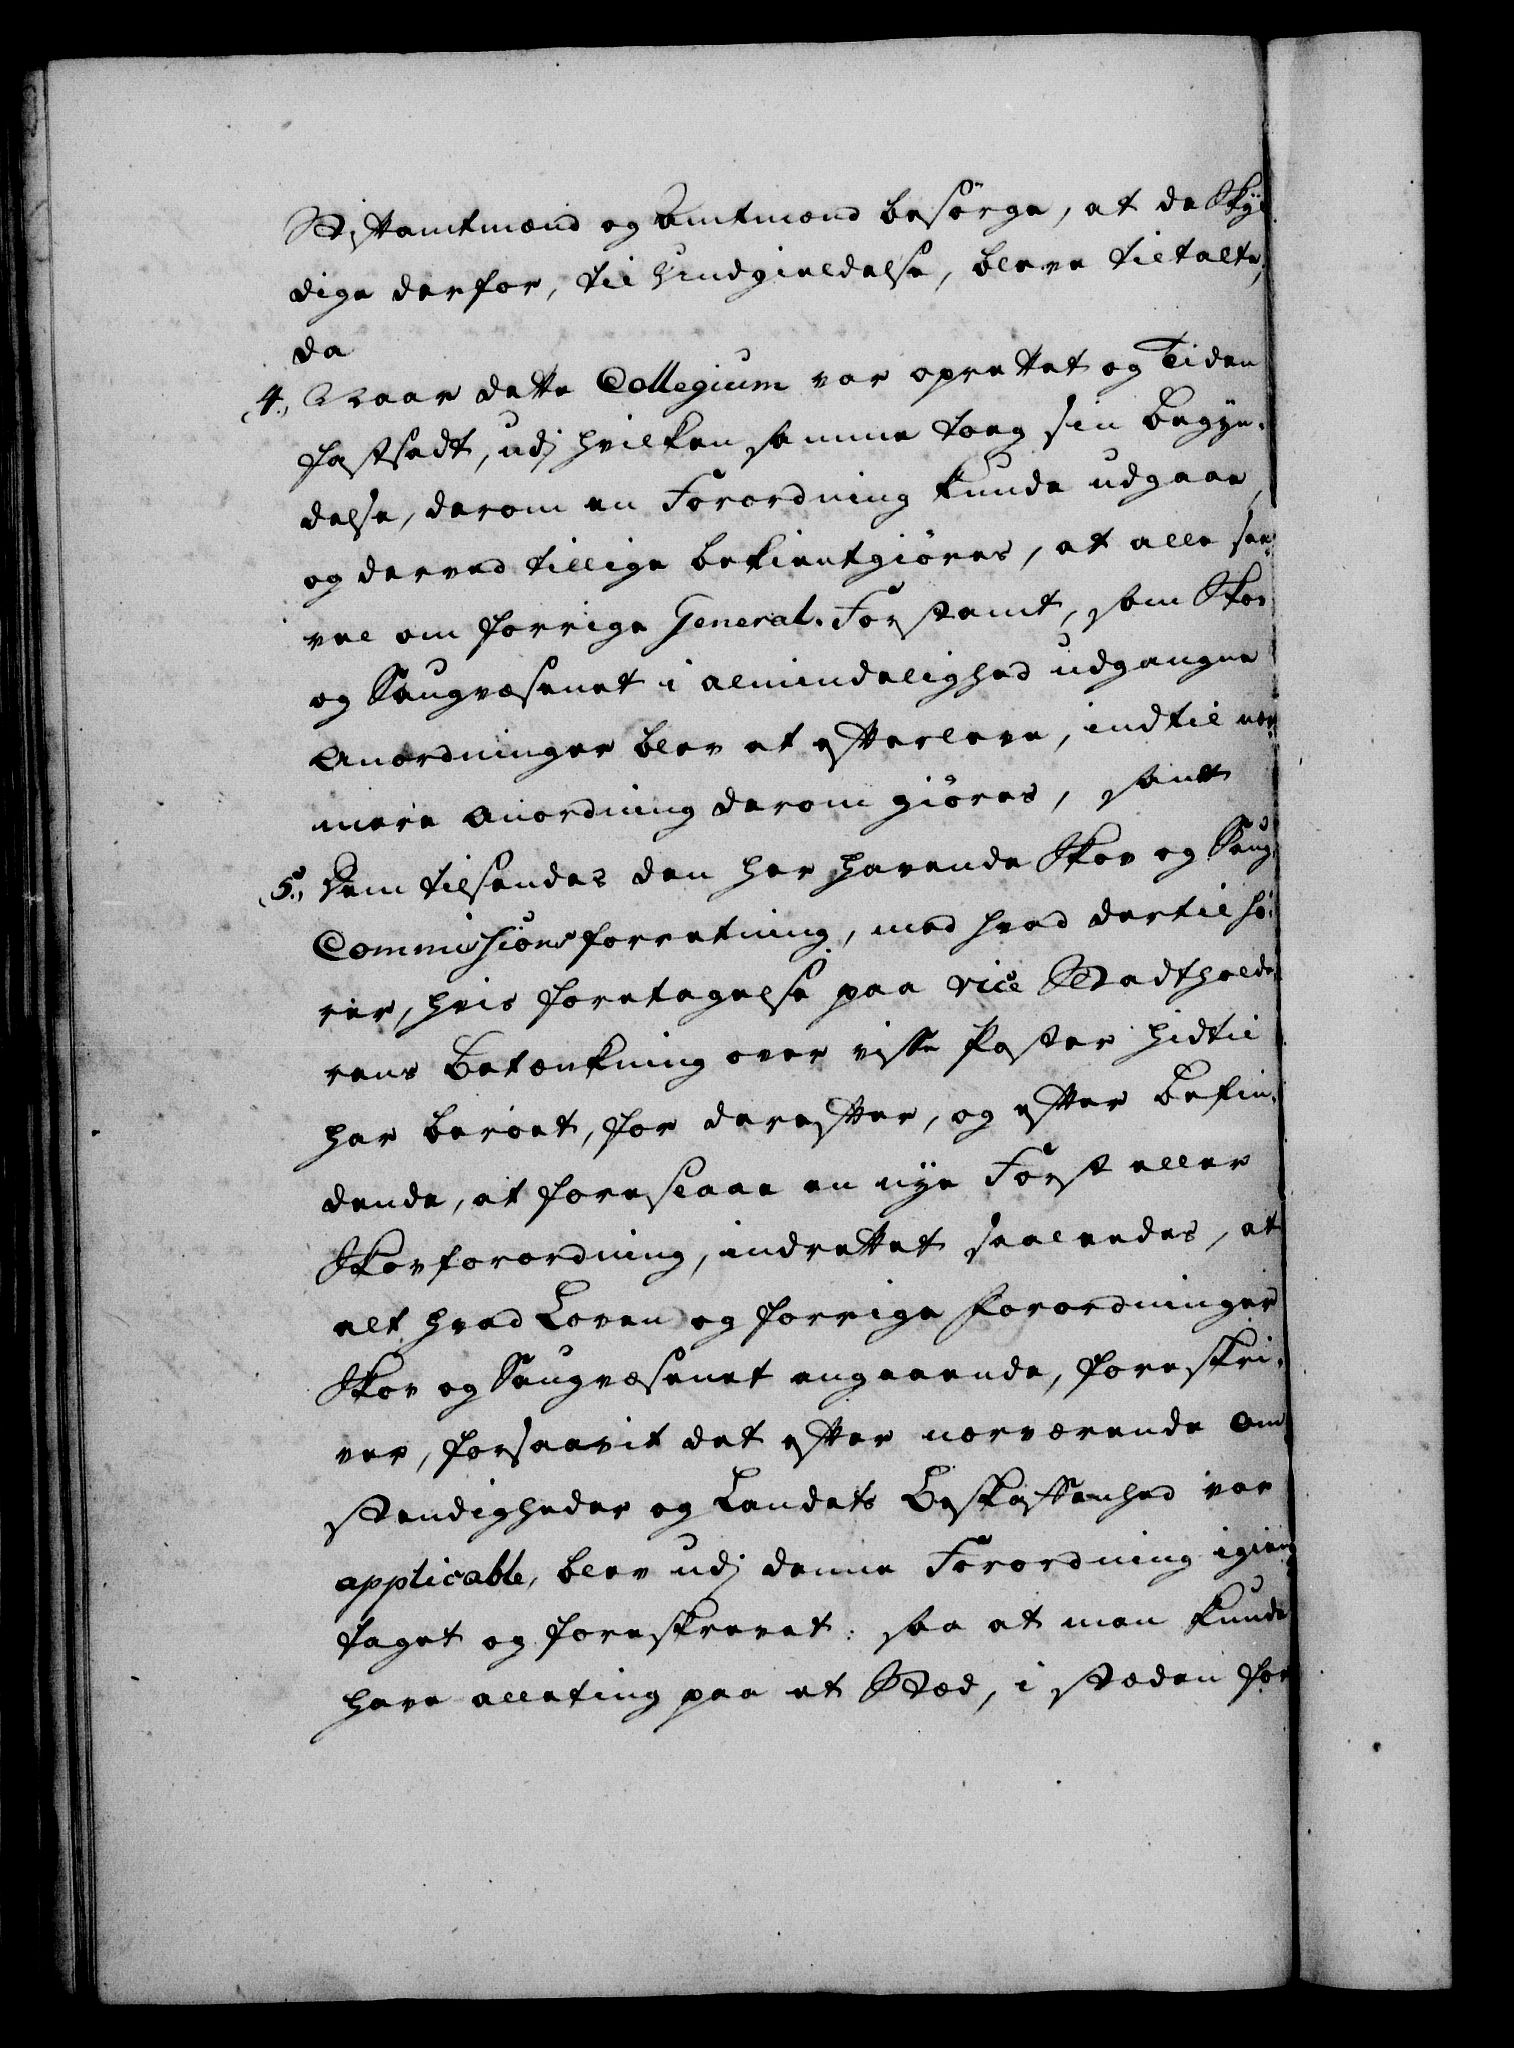 Stiftamtmænd og Amtmænd besørge, at de Skyl
dige derfor, til Undgieldelse, bleve tiltalte,
da
4., Naar dette Collegium var oprettet og Tiden
fastsadt, udj hvilken samme toeg sin Begyn-
delse, derom en Forordning kunde udgaae,
og derved tillige bekientgiöres, at alle saa-
vel om forrige General-Forstamt, som Skov
og Saugvæsenet i almindelighed udgangne
Anordninger blev at efterleve, indtil nær-
mere Anordning derom giöres, samt
5., Dem tilsendes den her havende Skov og Saug-
Commissions forretning, med hvad dertil hö-
rer, hvis foretagelse paa Vice Stadtholde
rens Betænkning over visse Poster hidtil
har beroet, for derefter, og efter Befin-
dende, at foreslaae en nye Forst eller
Skovforordning, indrettet saaledes, at
alt hvad Loven og forrige Forordninger
Skov og Saugvæsenet angaaende, foreskri-
ver, forsaavit det efter nærværende Om
stændigheder og Landets Beskaffenhed var
applicable, blev udj denne Forordning igien
taget og foreskrevet: saa at man kunde
have alleting paa et Stæd, i stæden for